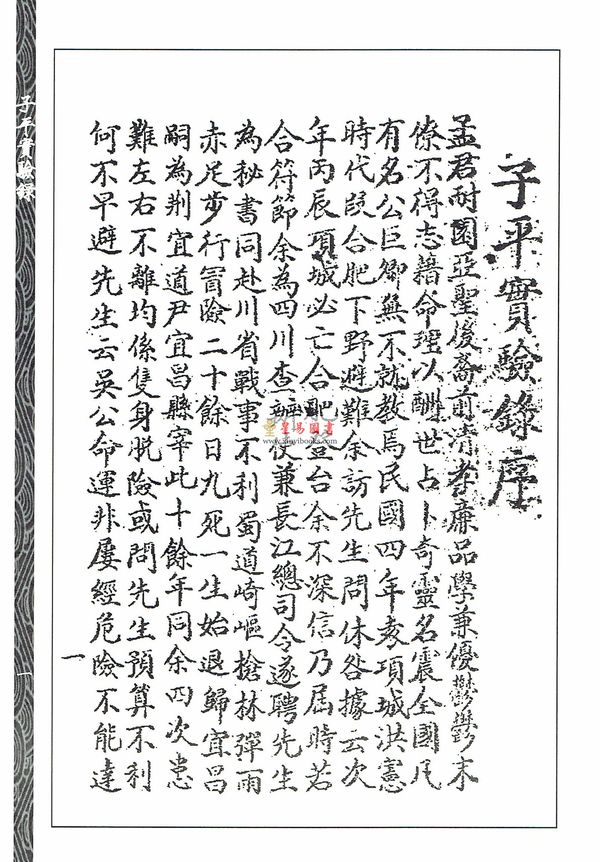 子平實驗錄序
孟君耐園亞聖後裔前清孝廉品學兼優鬱鬱末
僚不得志藉命理以酬世占卜奇靈名震全國凡
有名公巨卿無不就教焉民國四年袁項城洪憲
時代段合肥下野避難余訪先生問休咎據云次
年丙辰項城必亡合肥登台余不深信乃屆時若
合符節余為四川查辦使兼長江總司令遂聘先生
為秘書同赴川省戰事不利蜀道崎嶇槍林彈雨
赤足步行冒險二十餘日九死一生始退歸宜昌
嗣為荊宜道尹宜昌縣宰此十餘年同余四次患
難左右不離均係隻身脫險或問先生預算不利
何不早避先生云吳公命運非屢經危險不能達
一
子平實驗錄
一
星易圖書
www.xinyibooks.com